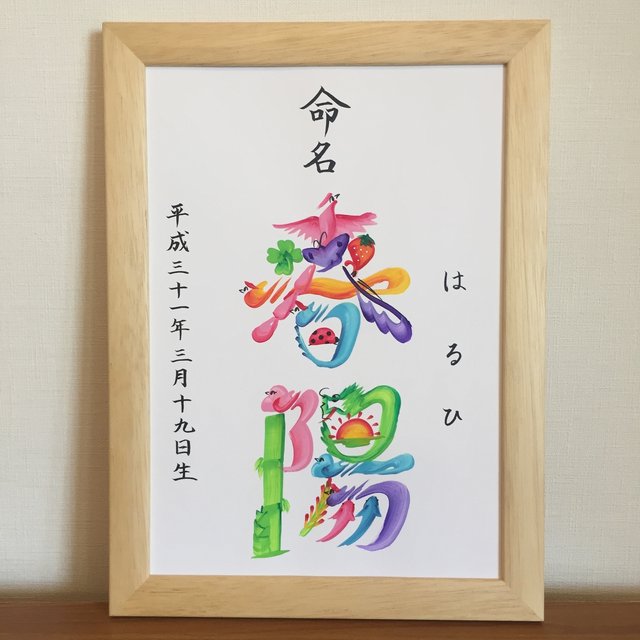 命名
はるひ
春陽
平成三十一年三月十九日生